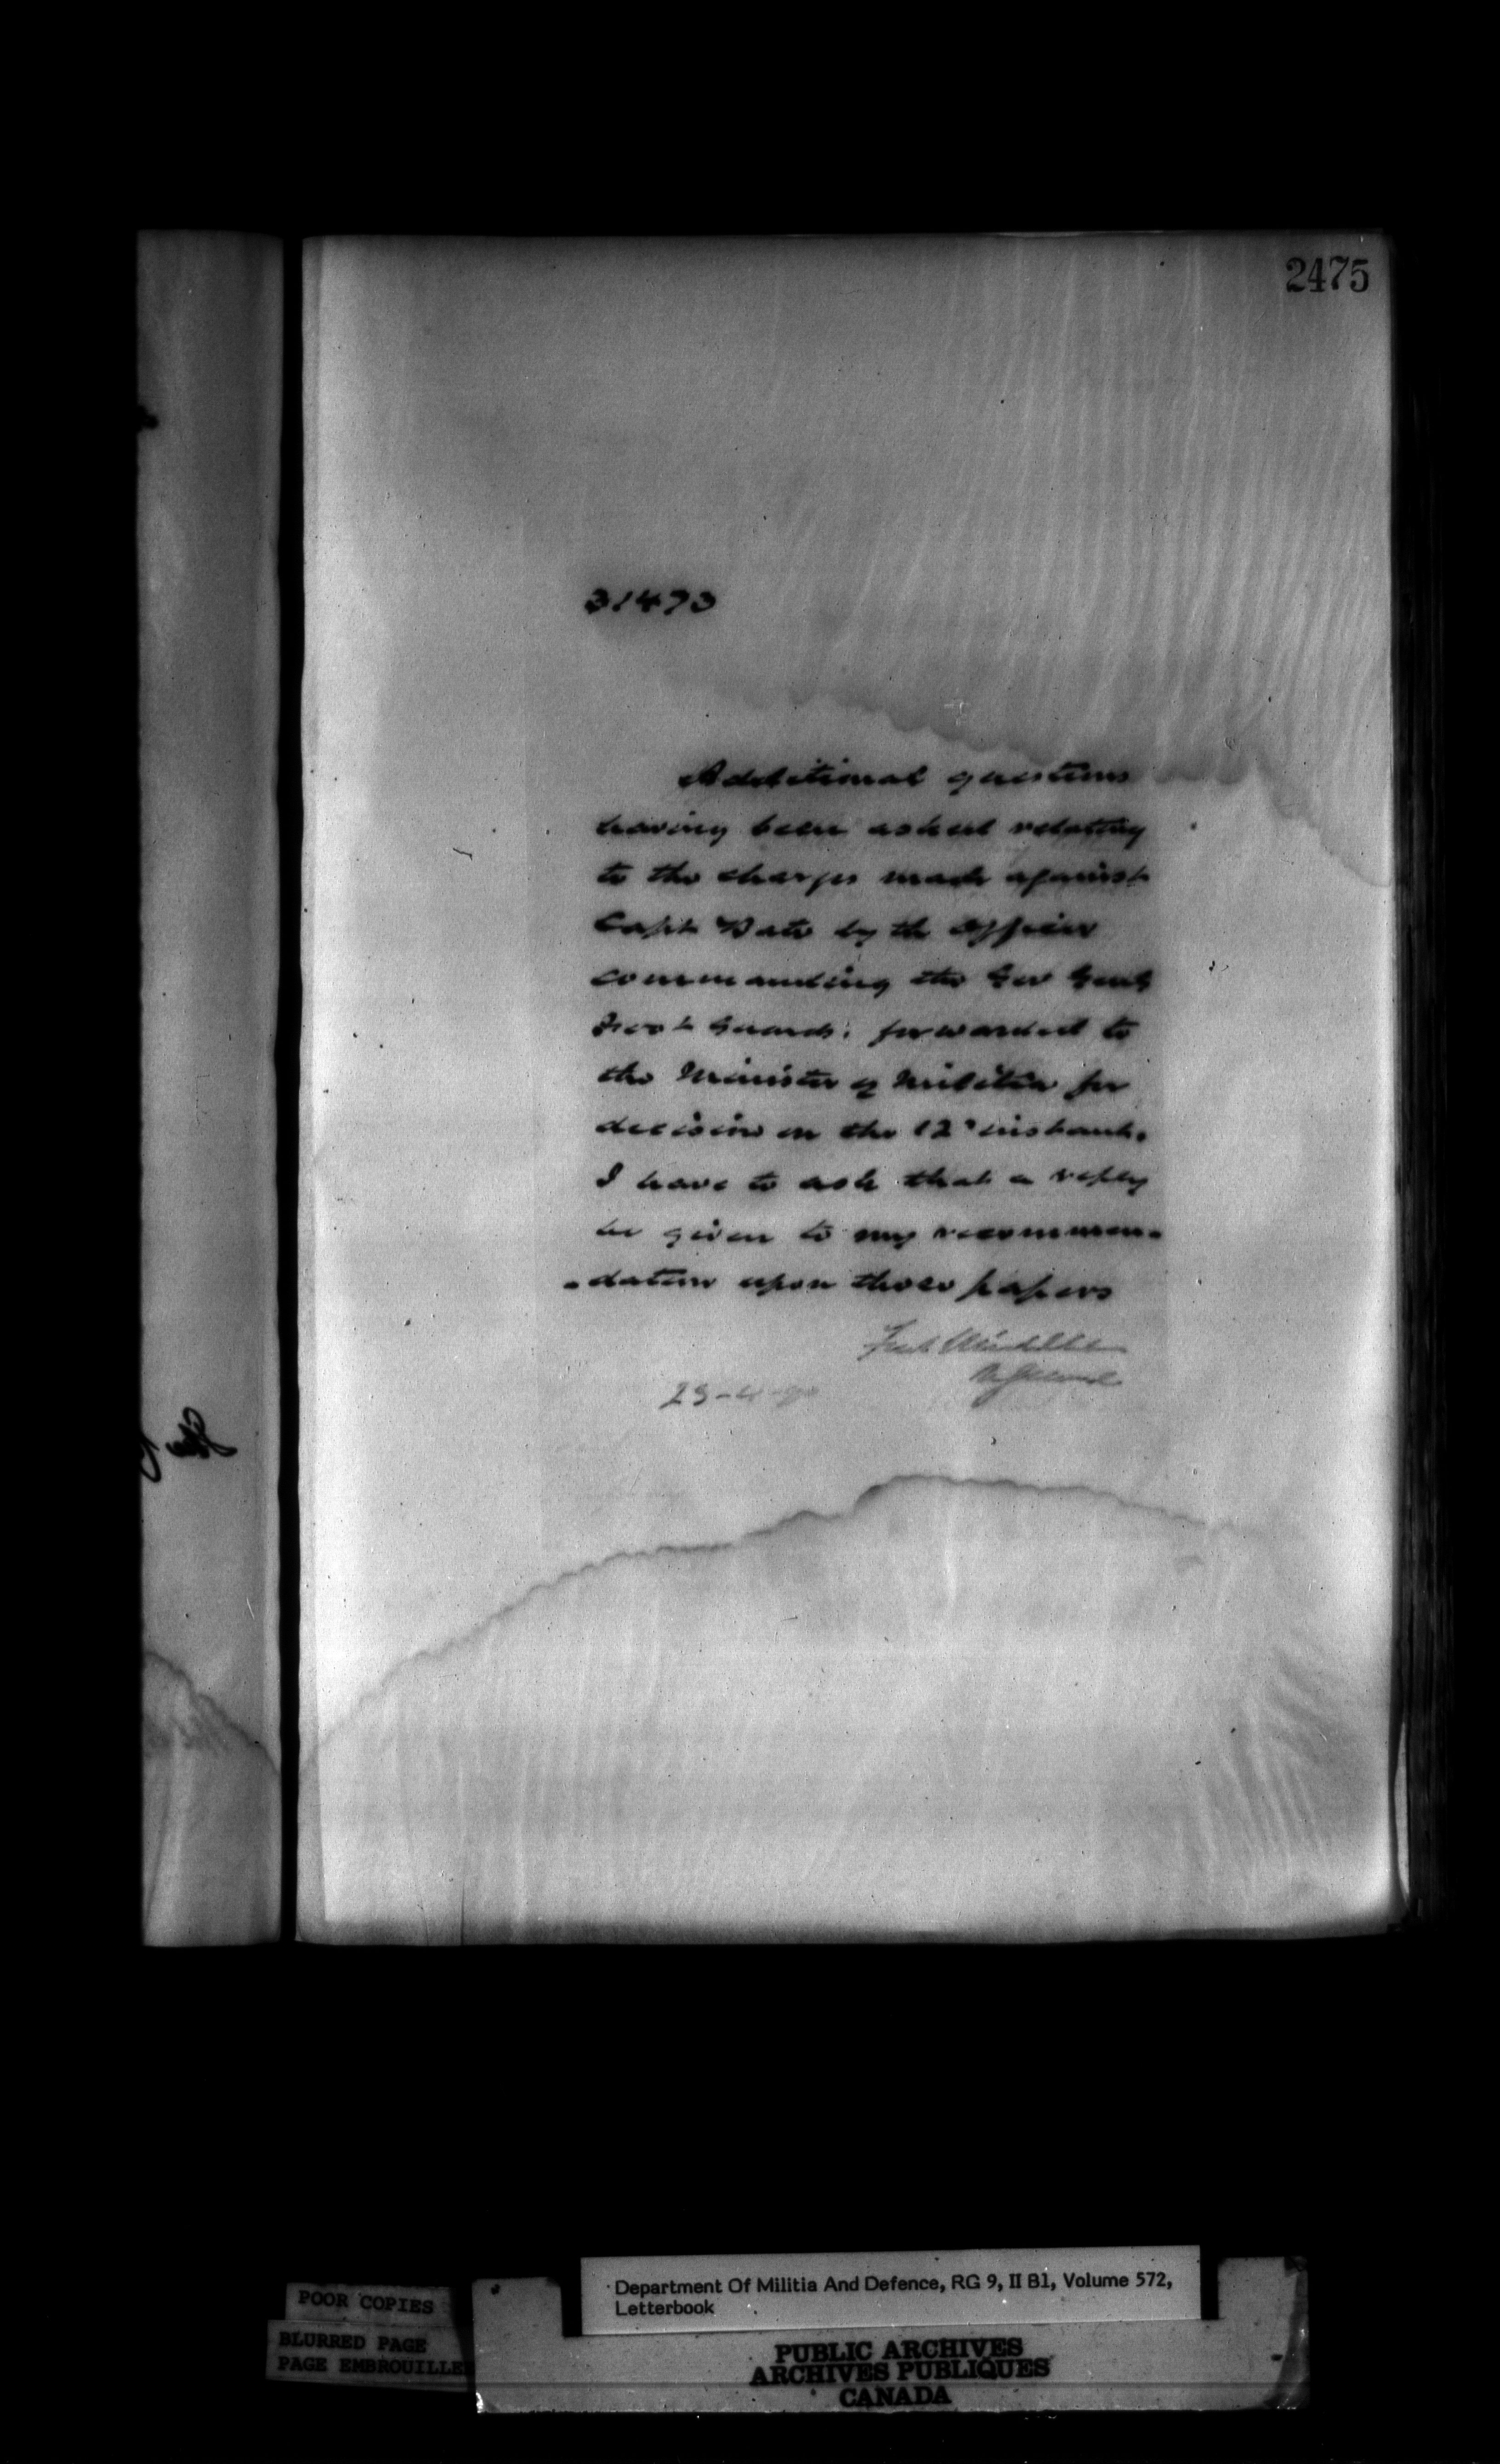 2475
31473
Additional questions
having been asked relating
to the charges made against
Capt Bate by the Officer
commanding the Gov Genls
Foot Guards: forwarded to
the Minister of Militia for
decision on the 12" instant.
I have to ask that a reply
be given to my recommen-
-dation upon those papers
Fred Middleton
M General
23-4-90
POOR COPIES
BLURRED PAGE
PAGE EMBROUILLEE
Department Of Militia And Defence, RG 9, II B1, Volume 572,
Letterbook
PUBLIC ARCHIVES
ARCHIVES PUBLIQUES
CANADA